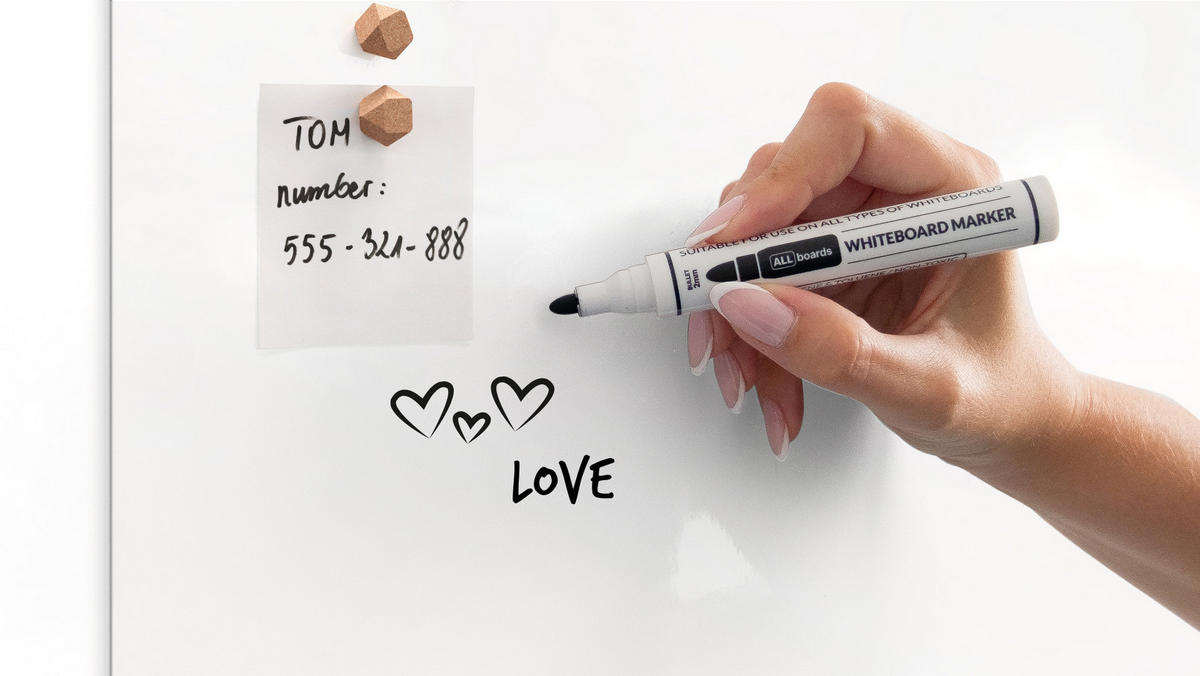 TOM
number:
555-321-888
SUITABLE FOR USE ON ALL TYPES OF WHITEBOARDS
BULLET
2mm
ALLboards
WHITEBOARD MARKER
NON-TOXIC
LOVE